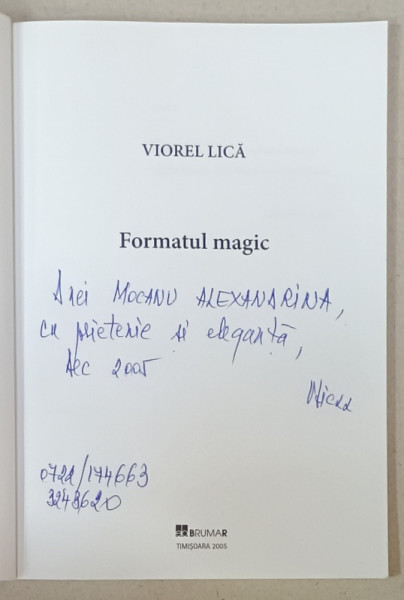 VIOREL LICĂ
Formatul magic
Dnei MOCANU ALEXANDRINA,
cu prietenie și eleganță,
dec 2005
0722/174663
3243620
BRUMAR
TIMIȘOARA 2005